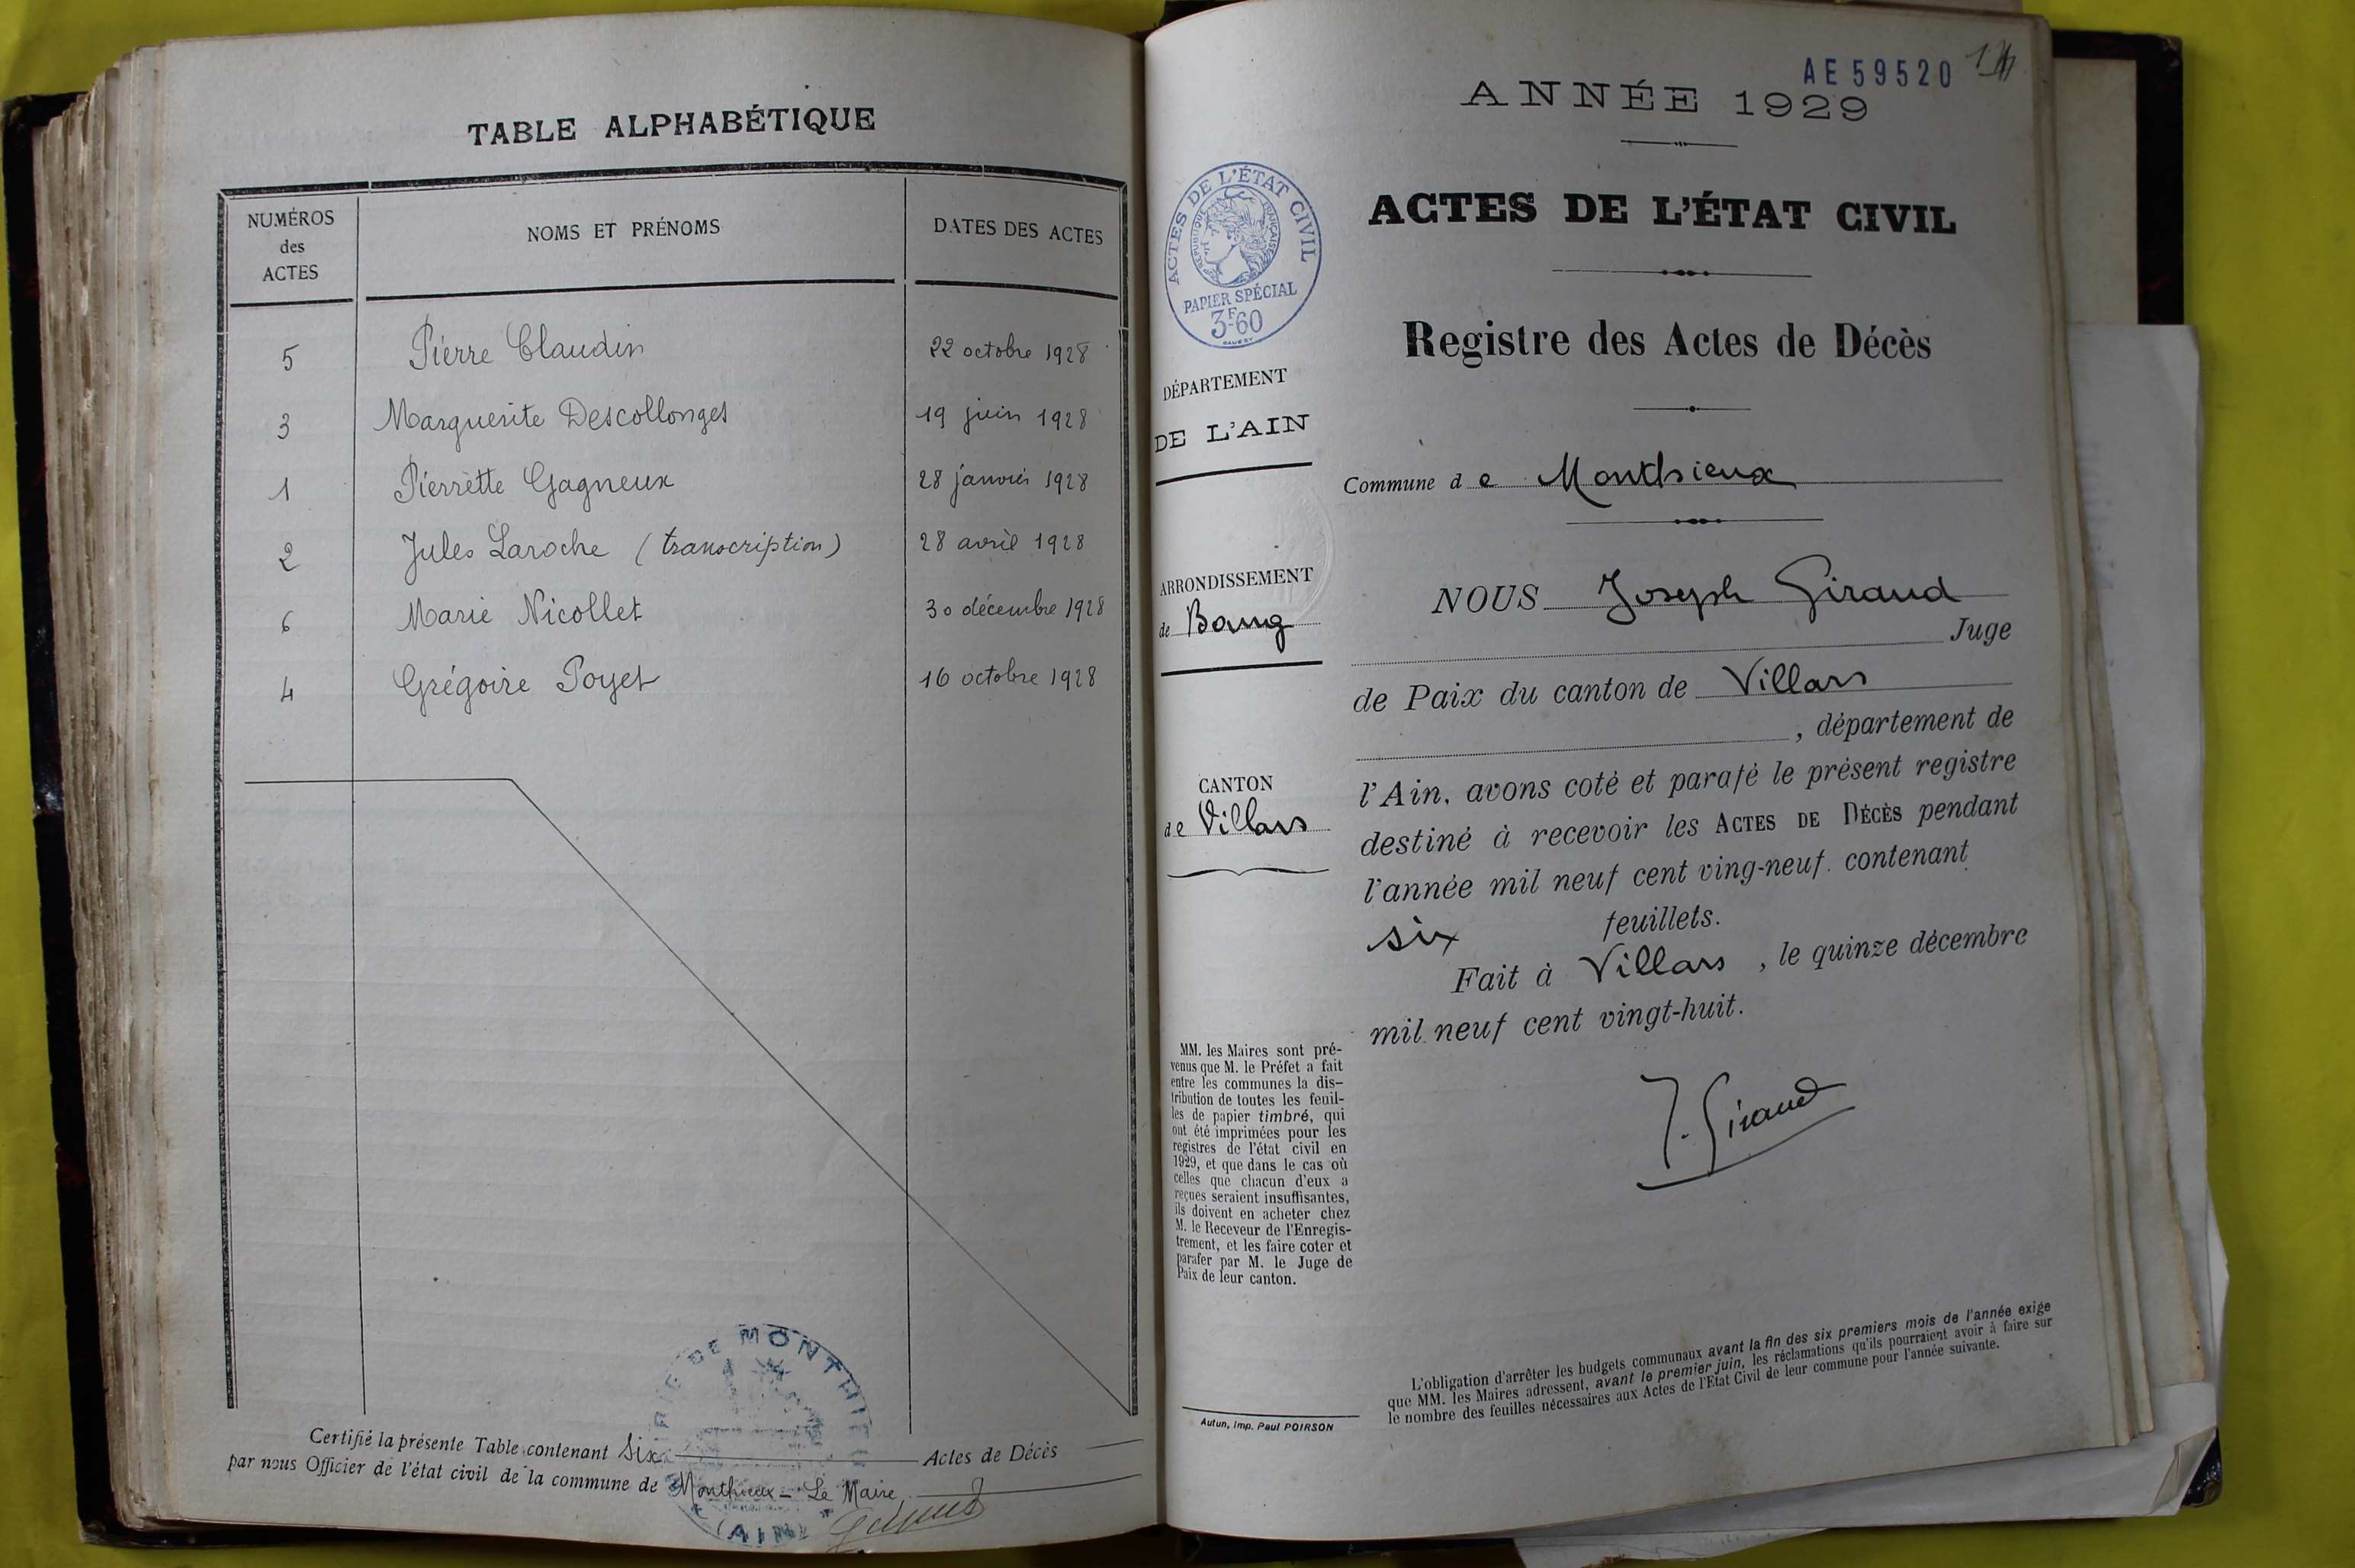 TABLE ALPHABÉTIQUE
NUMÉROS des ACTES
NOMS ET PRÉNOMS
DATES DES ACTES
5 Pierre Claudin 22 octobre 1928
3 Marguerite Descollonges 19 juin 1928
1 Pierrette Gagneux 28 janvier 1928
2 Jules Laroche (transcription) 28 avril 1928
6 Marie Nicollet 30 décembre 1928
4 Grégoire Poyet 16 octobre 1928
Certifié la présente Table contenant six Actes de Décès
par nous Officier de l'état civil de la commune de Monthieux - Le Maire
MAIRIE DE MONTHIEUX
(AIN)
AE 59520
ANNÉE 1929
ACTES DE L'ÉTAT CIVIL
RÉPUBLIQUE FRANÇAISE
PAPIER SPÉCIAL
3F-60
ACTES DE L'ÉTAT CIVIL
Registre des Actes de Décès
DÉPARTEMENT
DE L'AIN
ARRONDISSEMENT
de Bourg
CANTON
de Villars
MM. les Maires sont pré-
venus que M. le Préfet a fait
entre les communes la dis-
tribution de toutes les feuil-
les de papier timbré, qui
ont été imprimées pour les
registres de l'état civil en
1929, et que dans le cas où
celles que chacun d'eux a
reçues seraient insuffisantes,
ils doivent en acheter chez
M. le Receveur de l'Enregis-
trement, et les faire coter et
parafer par M. le Juge de
Paix de leur canton.
Autun, Imp. Paul POIRSON
Commune de Monthieux
NOUS Joseph Giraud
Juge
de Paix du canton de Villars
, département de
l'Ain, avons coté et parafé le présent registre
destiné à recevoir les ACTES DE DÉCÈS pendant
l'année mil neuf cent ving-neuf. contenant
six feuillets.
Fait à Villars, le quinze décembre
mil neuf cent vingt-huit.
J. Giraud
L'obligation d'arrêter les budgets communaux avant la fin des six premiers mois de l'année exige
que MM. les Maires adressent, avant le premier juin, les réclamations qu'ils pourraient avoir à faire sur
le nombre des feuilles nécessaires aux Actes de l'Etat Civil de leur commune pour l'année suivante.